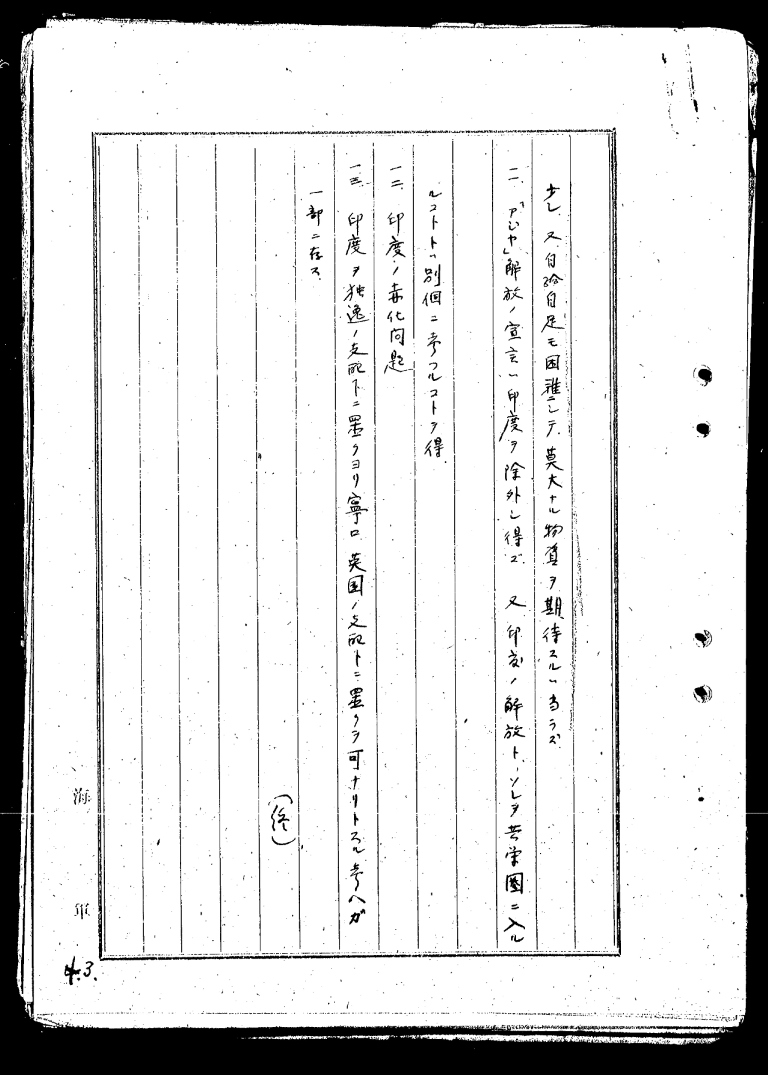 少シ、又自給自足モ困難ニシテ、莫大ナル物資ヲ期待スルハ当ラズ
一一、「アジヤ」解放ノ宣言ハ印度ヲ除外シ得ズ 又印度ノ解放ト、ソレヲ共栄圏ニ入ル
ルコトトハ別個ニ考フルコトヲ得、
一二、印度ノ赤化問題
一三、印度ヲ独逸ノ支配下ニ置クヨリ寧ロ 英国ノ支配下ニ置クヲ可ナリトスル考ヘガ
一部ニ存ス、
(終)
海軍
4.3.